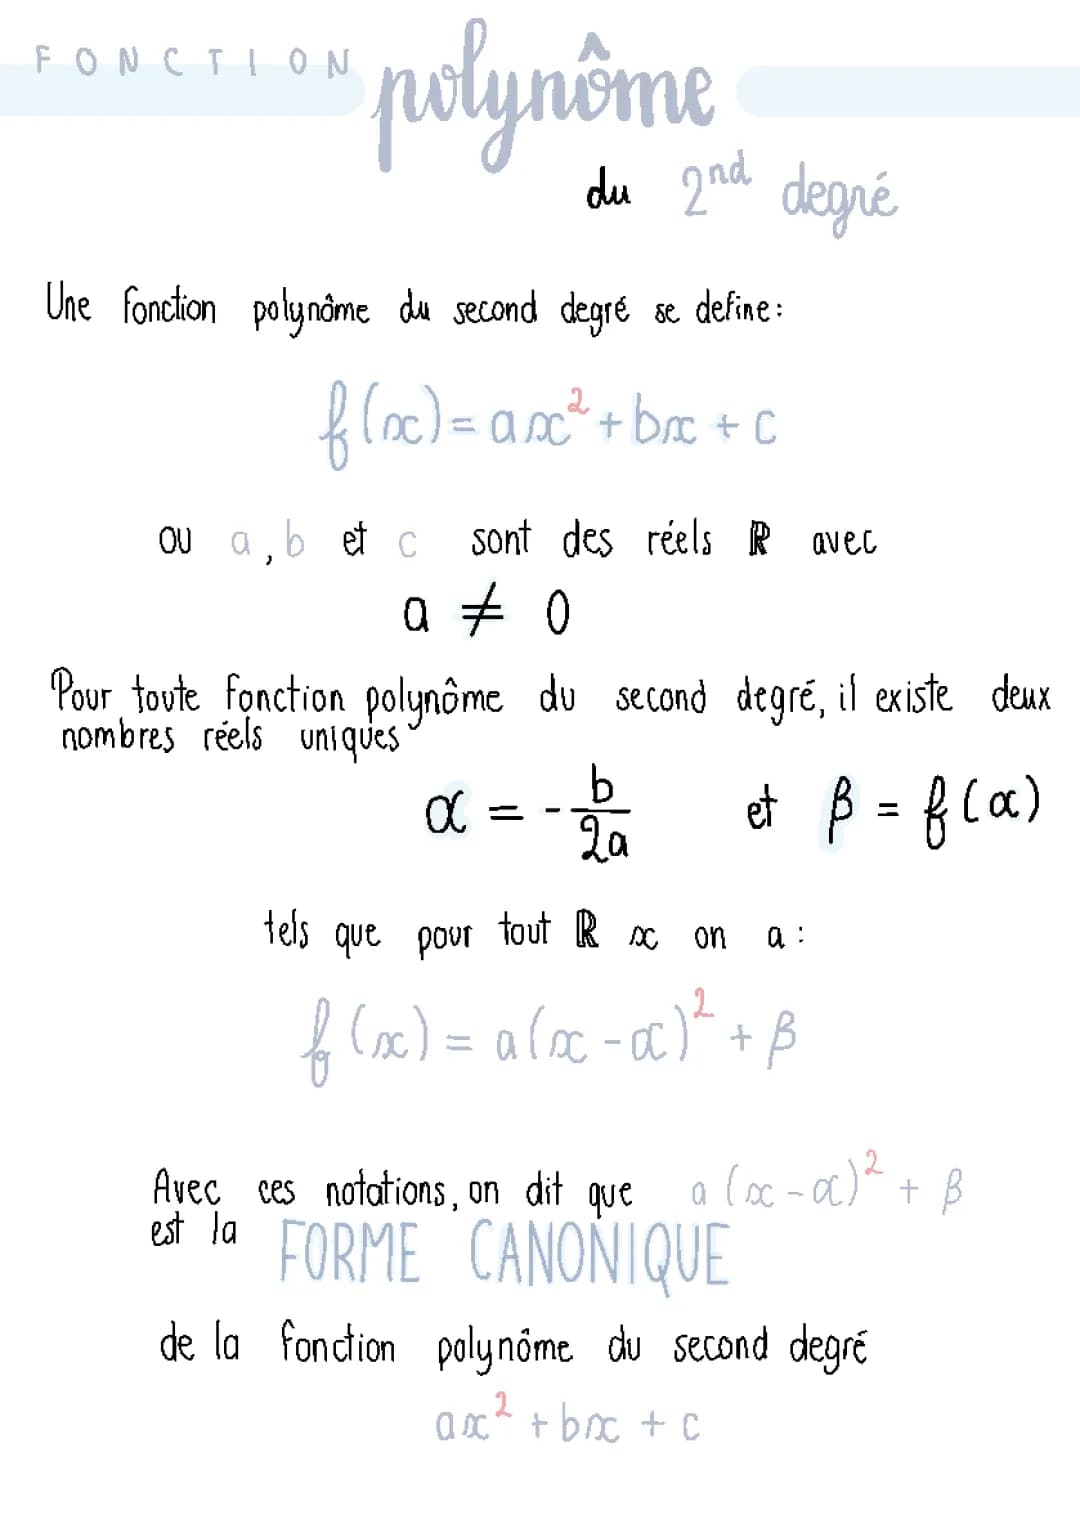 FONCTION polynôme
du 2nd degré
Une fonction polynôme du second degré se define:
f(x)= ax²+bx + c
ou a, b et c sont des réels ℝ avec
a ≠ 0
Pour toute fonction polynôme du second degré, il existe deux
nombres réels uniques
α = -b/2a et β = f(α)
tels que pour tout ℝ x on a:
f(x) = a(x-α)² + β
Avec ces notations, on dit que a(x-α)² + β
est la FORME CANONIQUE
de la fonction polynôme du second degré
ax² + bx + c